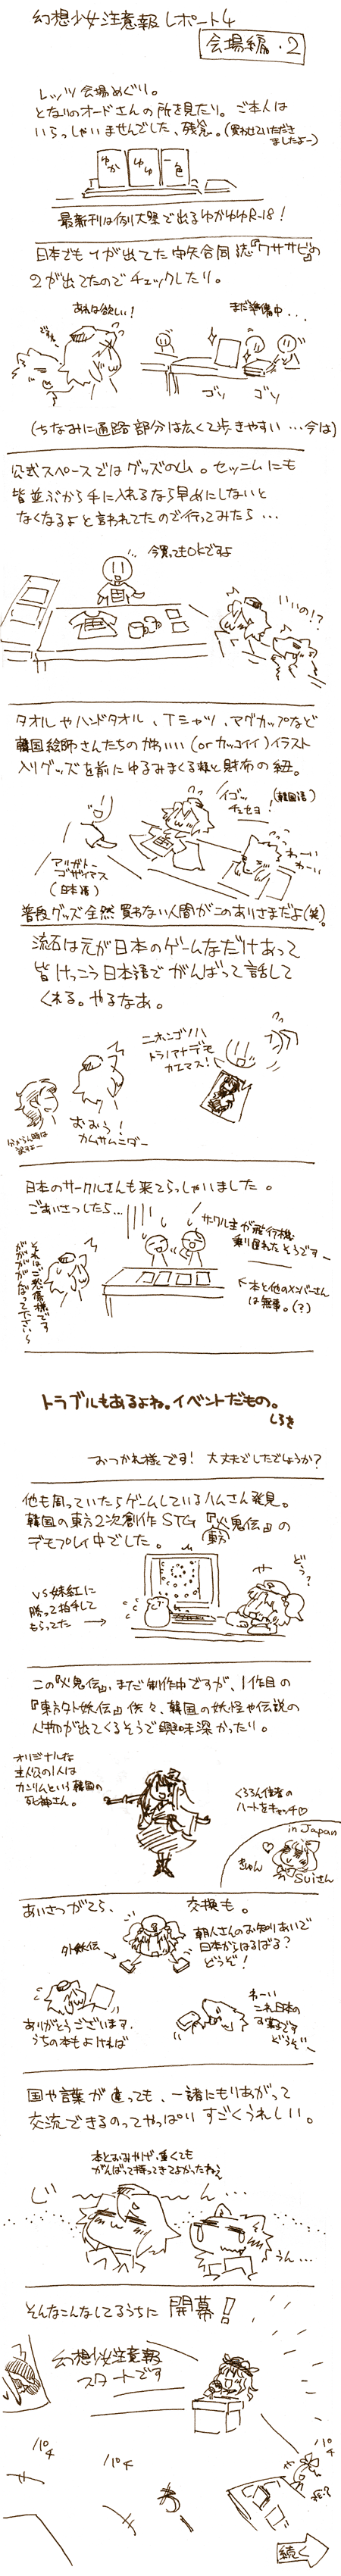 幻想少女注意報レポート4
会場編・2
レッツ会場めぐり。
となりのオードさんの所を見たり。ご本人は
いらっしゃいませんでした、残念。(買わせていただき
ましたよー)
ゆか
ゆゆ
一色
最新刊は例大祭で出るゆかゆゆR-18!
日本でも1が出てた
合同誌『ワサビ』の
2が出てたのでチェックしたり。
あれは欲しい!
まだ準備中...
ゴソ
ゴソ
(ちなみに通路部分は広くて歩きやすい…今は)
公式スペースではグッズの山。セッニムにも
皆並ぶから手に入れるなら早めにしないと
なくなるよと言われてたので行ってみたら…
今買ってもOKですよ
いいの!?
タオルやハンドタオル、Tシャツ、マグカップなど
韓国絵師さんたちのかわいい(orカッコイイ)イラスト
入りグッズを前にゆるみまくる頬と財布の紐。
イゴッ
チュセヨ!
(韓国語)
わーい
わーい
アリガトー
ゴザイマス
(日本語)
普段グッズ全然買わない人間がこのありさまだよ(笑)。
流石は元が日本のゲームなだけあって
皆けっこう日本語でがんばって話して
くれる。やるなあ。
ニホンゴノハ
トラノアナデモ
カエマス!
おおう!
カムサムニダー
分からん時は
訳すよー
日本のサークルさんも来てらっしゃいました。
ごあいさつしたら...
サークル主が飛行機
乗り遅れたそうですー
本と他のメンバーさん
は無事。(?)
それは…ご愁傷様です
ががががんばってくださいら
トラブルもあるよね。イベントだもの。
しろき
おつかれ様です! 大丈夫でしたでしょうか?
他も周っていたらゲームしているハムさん発見。
韓国の東方2次創作STG『火鬼伝』の
東方
デモプレイ中でした。
どう?
VS妹紅に
勝って拍手して
もらってた
この『火鬼伝』、まだ制作中ですが、1作目の
『東方外妖伝』依々、韓国の妖怪や伝説の
人物が出てくるそうで興味深かったり。
オリジナルな
主人公の1人は
カンリムという韓国の
死神さん。
くろろん信者の
ハートをキャッチ♡
in Japan
きゅん
Suiさん
あいさつがてら、
交換も。
外妖伝
朝人さんのお知りあいで
日本からはるばる?
どうぞ!
ありがとうございます。
うちの本もよければ
わーい
これ日本の
お菓子です
どうぞー
国や言葉が違っても、一緒にもりあがって
交流できるのってやっぱりすごくうれしい。
本とおみやげ、重くても
がんばって持ってきてよかったねぅ
じ〜〜ん…
うん…
そんなこんなしてるうちに 開幕!
幻想少女注意報
スタートです
パチ
パチ
パチ
わー
続く